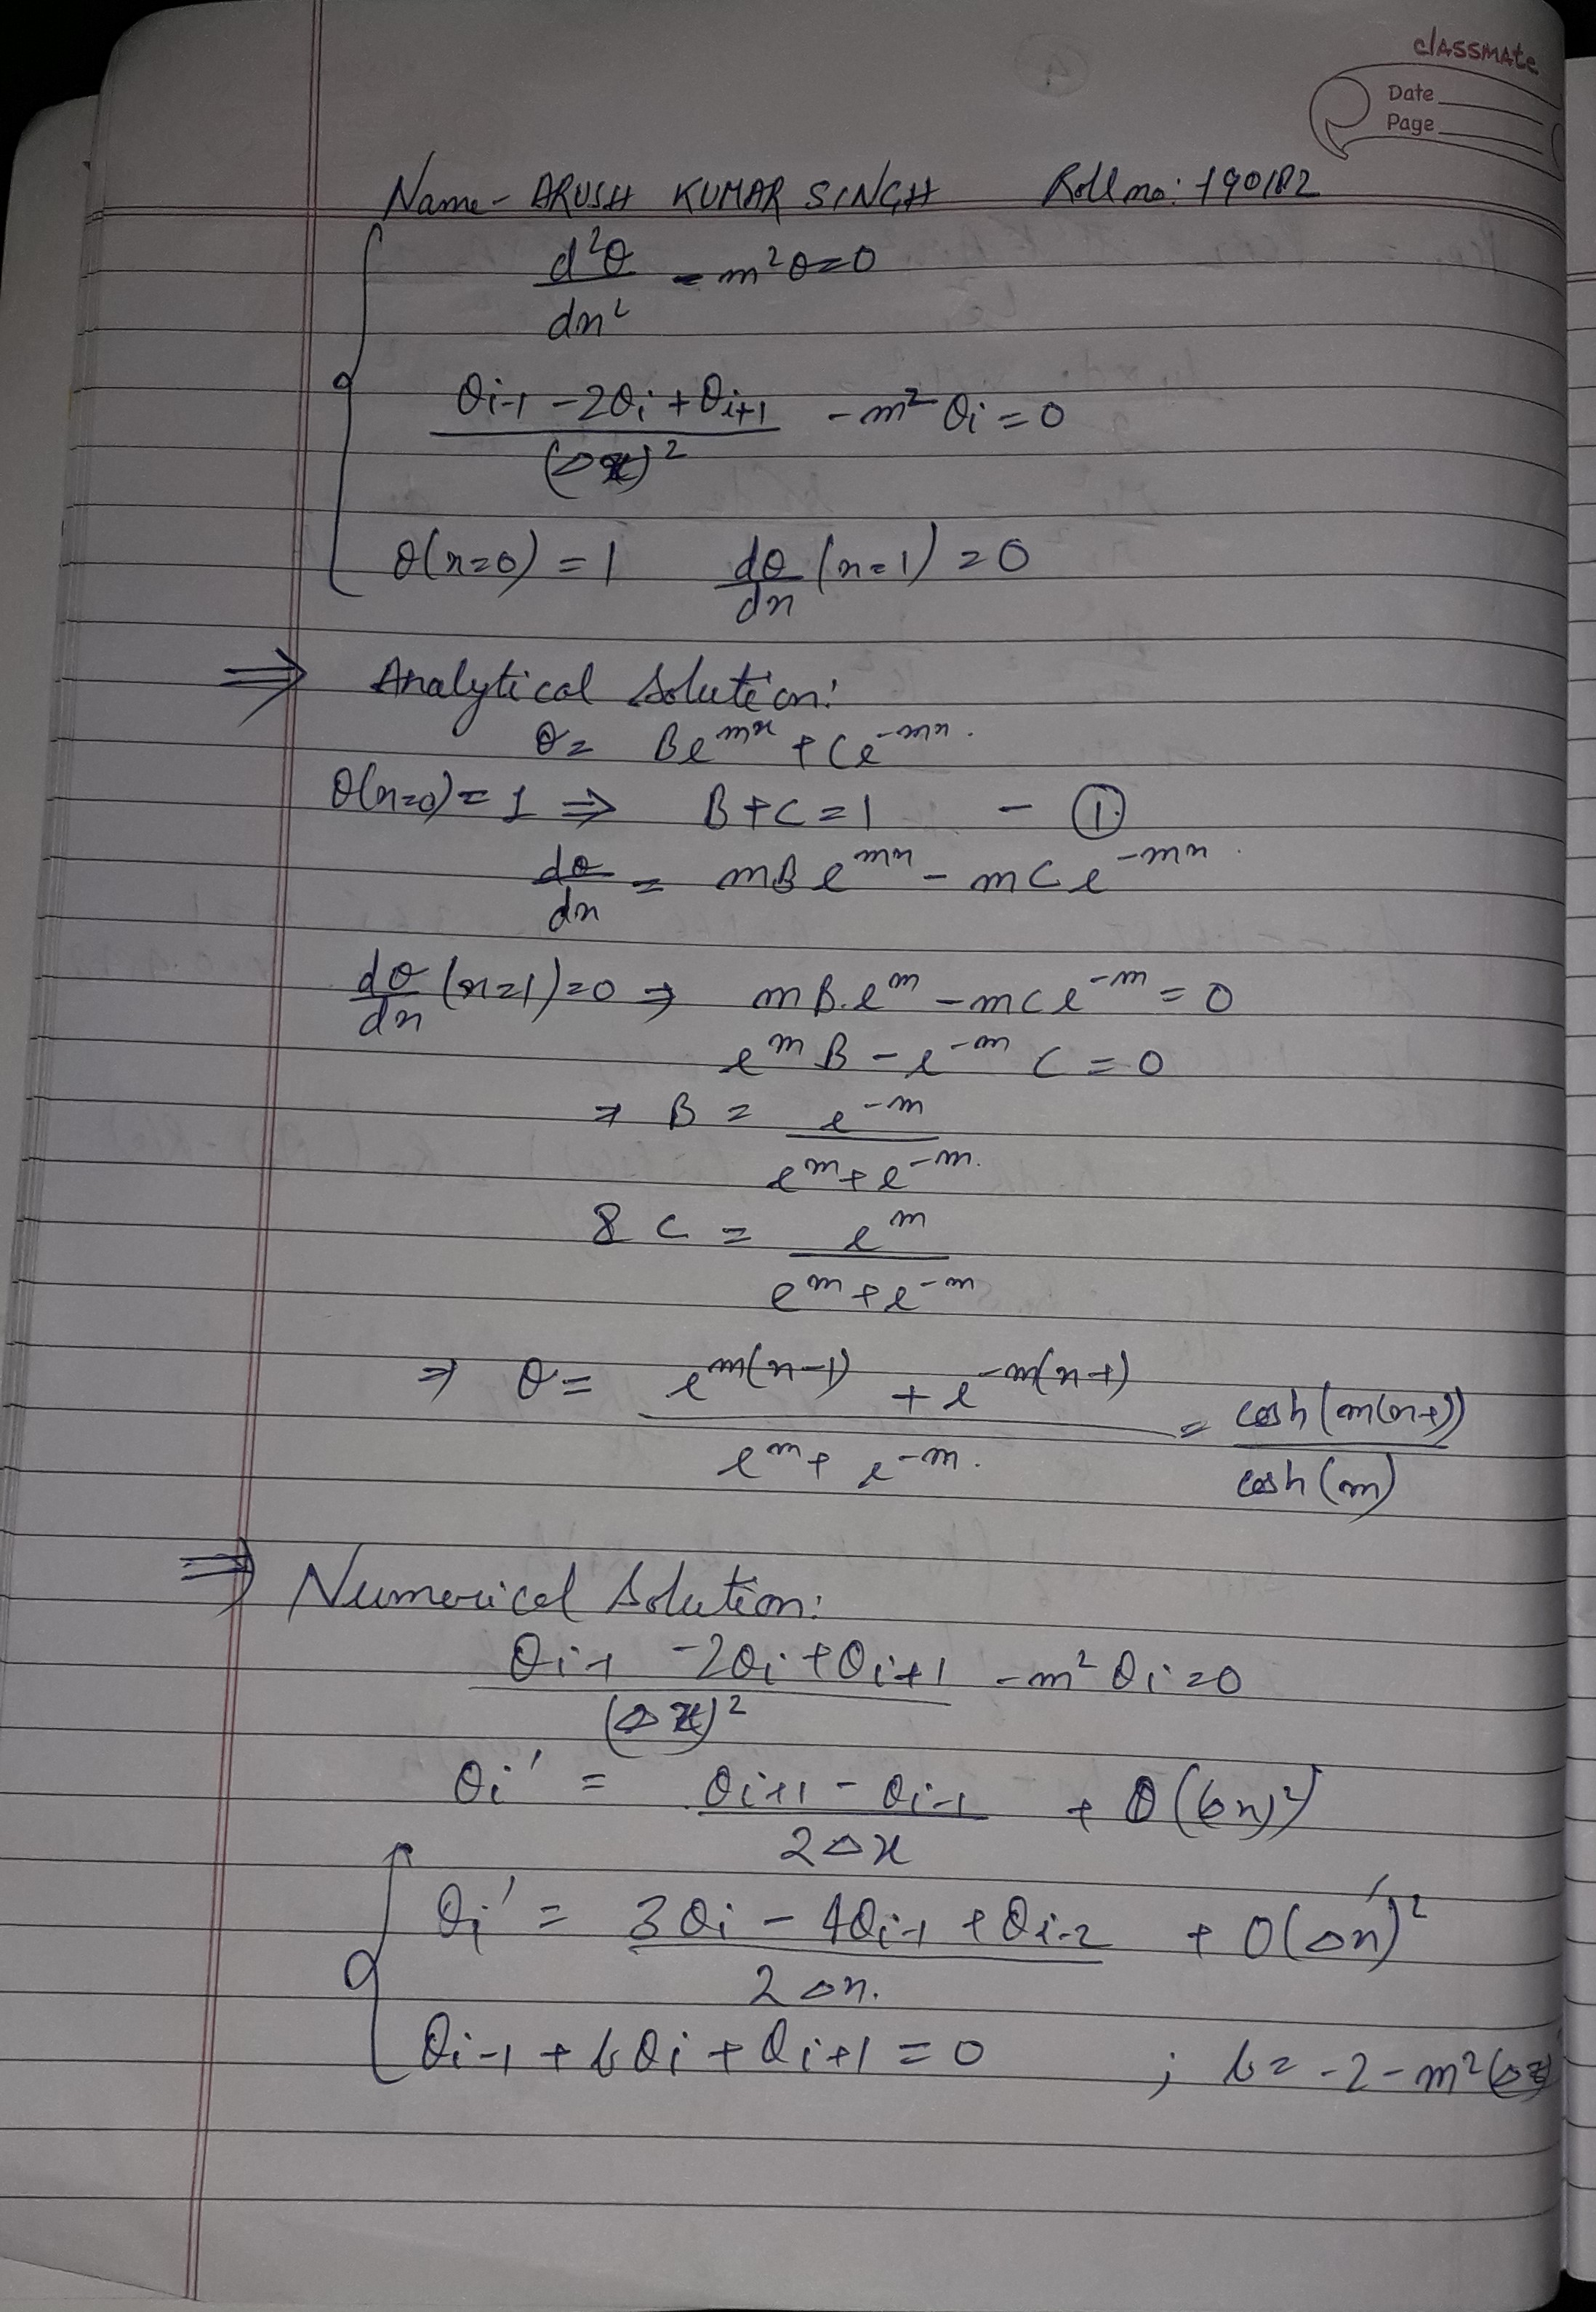 classmate
Date
Page
Name - ARUSH KUMAR SINGH Roll no: 190182
d²θ/dx² - m²θ = 0
(θi-1 - 2θi + θi+1)/(Δx)² - m²θi = 0
θ(x=0) = 1 dθ/dx (x=1) = 0
⇒ Analytical Solution:
θ = Be^mx + Ce^-mx.
θ(x=0) = 1 ⇒ B+C=1 - ①
dθ/dx = mBe^mx - mCe^-mx.
dθ/dx (x=1)=0 ⇒ mB.e^m - mCe^-m = 0
e^m B - e^-m C = 0
⇒ B = e^-m/(e^m + e^-m).
& C = e^m/(e^m + e^-m)
⇒ θ = (e^m(x-1) + e^-m(x-1))/(e^m + e^-m). = cosh(m(x-1))/cosh(m)
⇒ Numerical Solution:
(θi-1 - 2θi + θi+1)/(Δx)² - m²θi = 0
θi' = (θi+1 - θi-1)/2Δx + O(Δx)²
θi' = (3θi - 4θi-1 + θi-2)/2Δx. + O(Δx)²
θi-1 + bθi + θi+1 = 0 ; b = -2 - m²(Δx)